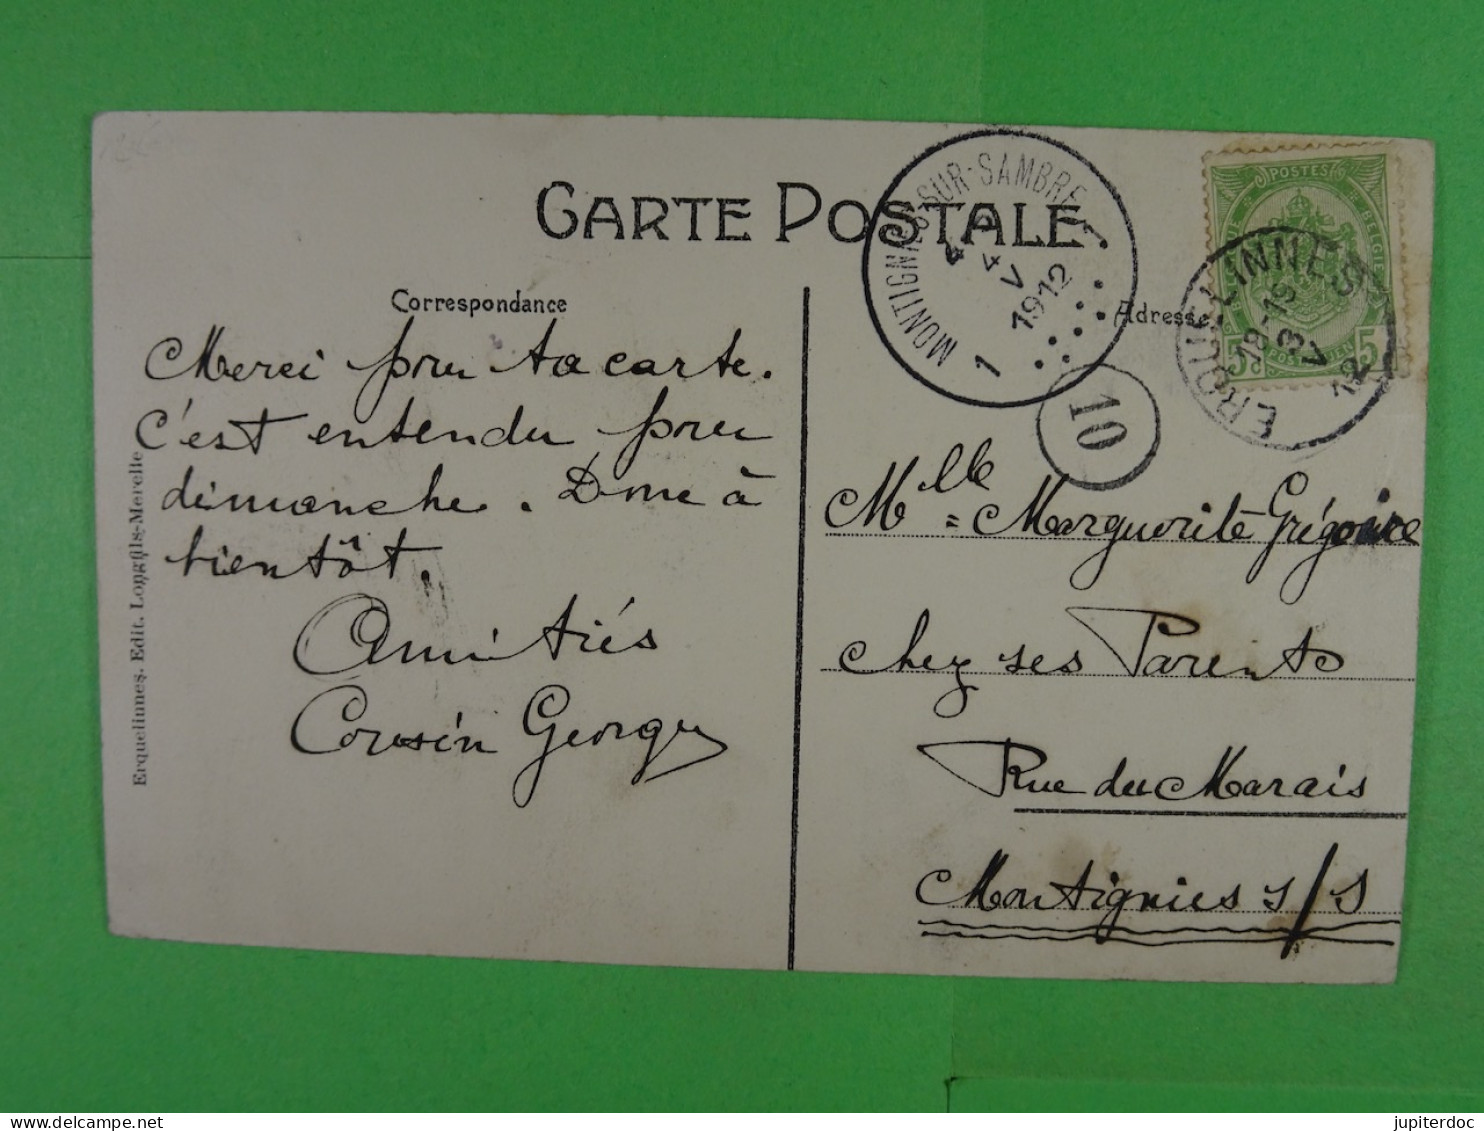 CARTE POSTALE
Correspondance
Adresse
Merci pour ta carte.
C'est entendu pour
dimanche. Donc à
bientôt.
Amitiés
Cousin Georges
Erquelinnes. Edit. Longfils-Merelle
MONTIGNIES-SUR-SAMBRE
4
4
V
1912
1
10
POSTES
BELGIE
5
5
ERQUELINNES
18-19
3
V
12
Mlle Marguerite Grégoire
chez ses Parents
Rue du Marais
Montignies s/S
delcampe.net
jupiterdoc